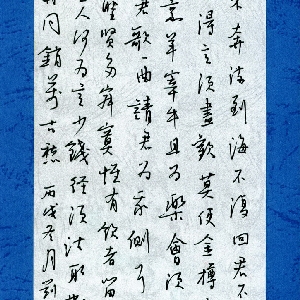 來奔流到海不復回君不
得意須盡歡莫使金樽
烹羊宰牛且為樂會須
君歌一曲請君為我側耳
聖賢多寂寞惟有飲者留
主人何為言少錢徑須沽取
同銷萬古愁丙戌冬月